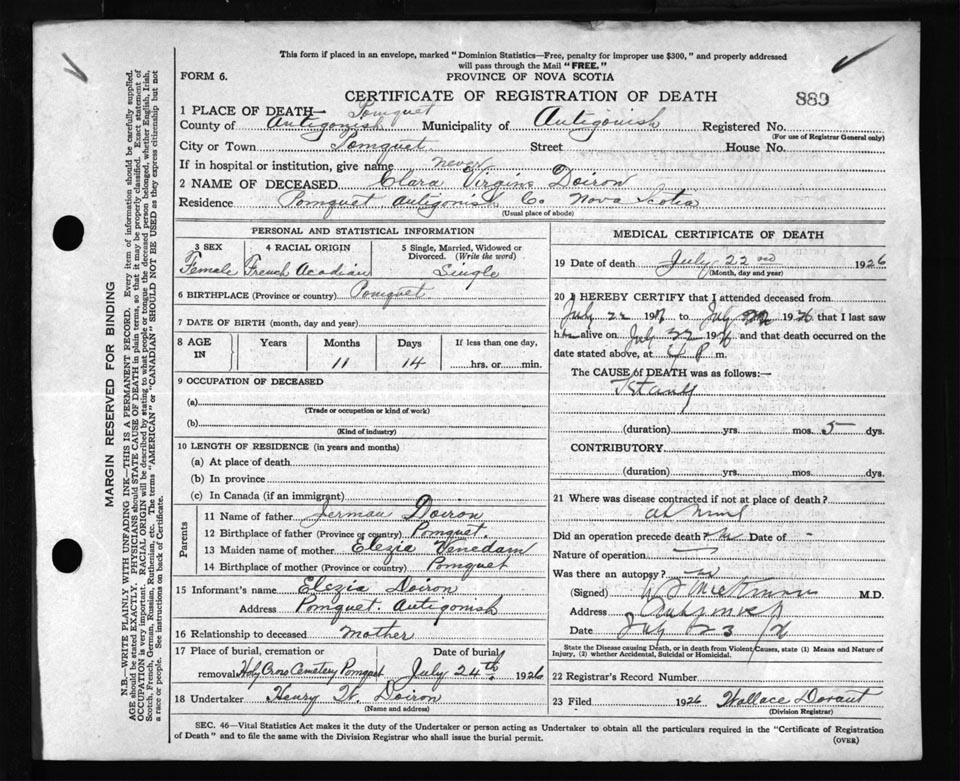 This form if placed in an envelope, marked "Dominion Statistics—Free, penalty for improper use $300," and properly addressed
will pass through the Mail "FREE."
FORM 6.
PROVINCE OF NOVA SCOTIA
CERTIFICATE OF REGISTRATION OF DEATH
889
1 PLACE OF DEATH— Pomquet
County of Antigonish Municipality of Antigonish Registered No.
(For use of Registrar General only)
City or Town Pomquet Street House No.
If in hospital or institution, give name never
2 NAME OF DECEASED Clara Virgins Doiron
Residence Pomquet Antigonish Co. Nova Scotia
(Usual place of abode)
PERSONAL AND STATISTICAL INFORMATION
3 SEX 4 RACIAL ORIGIN 5 Single, Married, Widowed or
Divorced. (Write the word)
Female French Acadian Single
6 BIRTHPLACE (Province or country) Pomquet
7 DATE OF BIRTH (month, day and year)
8 AGE Years Months Days If less than one day,
IN
11 14 hrs. or min.
9 OCCUPATION OF DECEASED
(a)
(Trade or occupation or kind of work)
(b)
(Kind of industry)
10 LENGTH OF RESIDENCE (in years and months)
(a) At place of death
(b) In province
(c) In Canada (if an immigrant)
Parents
11 Name of father Jerman Doiron
12 Birthplace of father (Province or country) Pomquet.
13 Maiden name of mother Elezia Venedam
14 Birthplace of mother (Province or country) Pomquet
15 Informant's name Elezia Doiron
Address Pomquet. Antigonish
16 Relationship to deceased Mother
17 Place of burial, cremation or Date of burial
removal Holy Cross Cemetery Pomquet July 24th 1926
18 Undertaker Henry W. Doiron
(Name and address)
MEDICAL CERTIFICATE OF DEATH
19 Date of death July 22nd 1926
(Month, day and year)
20 I HEREBY CERTIFY that I attended deceased from
July 22 19 to July 1926 that I last saw
h alive on July 22 1926 and that death occurred on the
date stated above, at 4 P m.
The CAUSE of DEATH was as follows:—
(duration) yrs. mos. 5 dys.
CONTRIBUTORY
(duration) yrs. mos. dys.
21 Where was disease contracted if not at place of death?
Did an operation precede death? no Date of -
Nature of operation
Was there an autopsy? no
(Signed) M.D.
Address
Date July 23 /26
State the Disease causing Death, or in death from Violent Causes, state (1) Means and Nature of
Injury, (2) whether Accidental, Suicidal or Homicidal.
22 Registrar's Record Number
23 Filed 1926 Wallace Dorant
(Division Registrar)
SEC. 46—Vital Statistics Act makes it the duty of the Undertaker or person acting as Undertaker to obtain all the particulars required in the "Certificate of Registration
of Death" and to file the same with the Division Registrar who shall issue the burial permit.
(OVER)
MARGIN RESERVED FOR BINDING
N.B.—WRITE PLAINLY WITH UNFADING INK—THIS IS A PERMANENT RECORD. Every item of information should be carefully supplied.
AGE should be stated EXACTLY. PHYSICIANS should STATE CAUSE OF DEATH in plain terms, so that it may be properly classified. Exact statement of
OCCUPATION is very important. RACIAL ORIGIN will be described by stating to what people or tongue the deceased person belonged, whether English, Irish,
Scotch, French, German, Russian, Ruthenian, etc. The terms "AMERICAN" or "CANADIAN" SHOULD NOT BE USED as they express citizenship but not
a race or people. See instructions on back of Certificate.